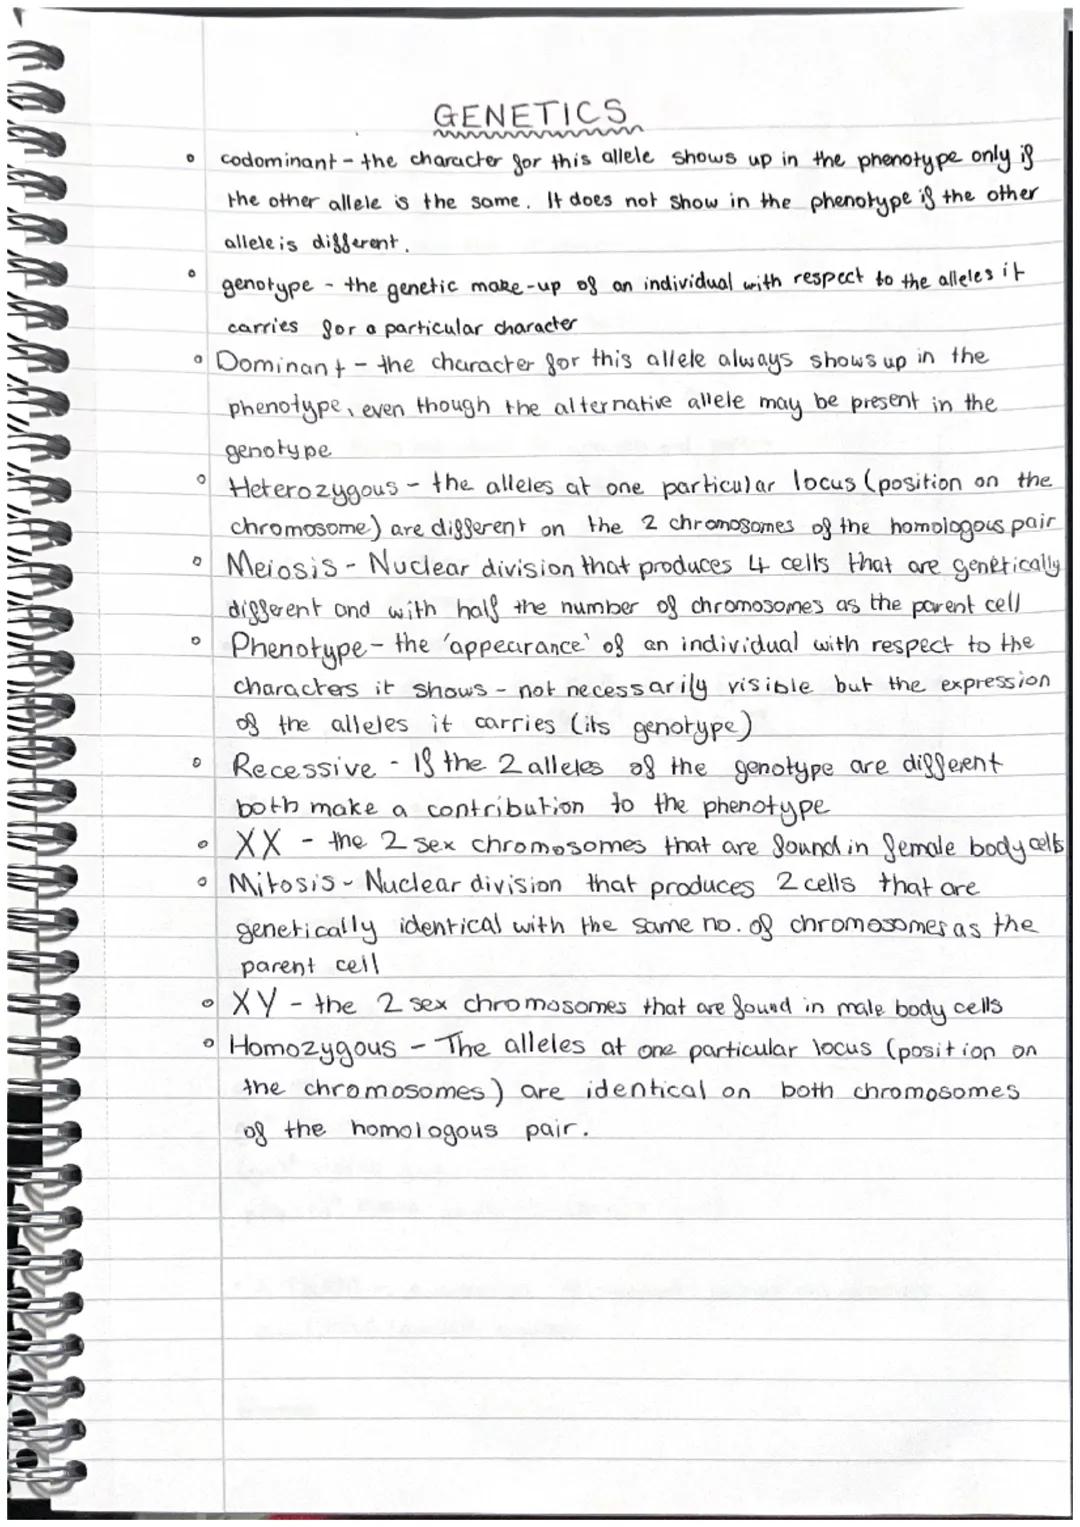 GENETICS
codominant - the character for this allele shows up in the phenotype only if
the other allele is the same. It does not show in the phenotype if the other
allele is different.
genotype - the genetic make-up of an individual with respect to the alleles it
carries for a particular character
Dominant - the character for this allele always shows up in the
phenotype, even though the alternative allele may be present in the
genotype
Heterozygous - the alleles at one particular locus (position on the
chromosome) are different on the 2 chromosomes of the homologous pair
Meiosis - Nuclear division that produces 4 cells that are genetically
different and with half the number of chromosomes as the parent cell
Phenotype - the 'appearance' of an individual with respect to the
characters it shows - not necessarily visible but the expression
of the alleles it carries (its genotype)
Recessive - If the 2 alleles of the genotype are different
both make a contribution to the phenotype
XX - the 2 sex chromosomes that are found in female body cells
Mitosis - Nuclear division that produces 2 cells that are
genetically identical with the same no. of chromosomes as the
parent cell
XY - the 2 sex chromosomes that are found in male body cells
Homozygous - The alleles at one particular locus (position on
the chromosomes) are identical on both chromosomes
of the homologous pair.